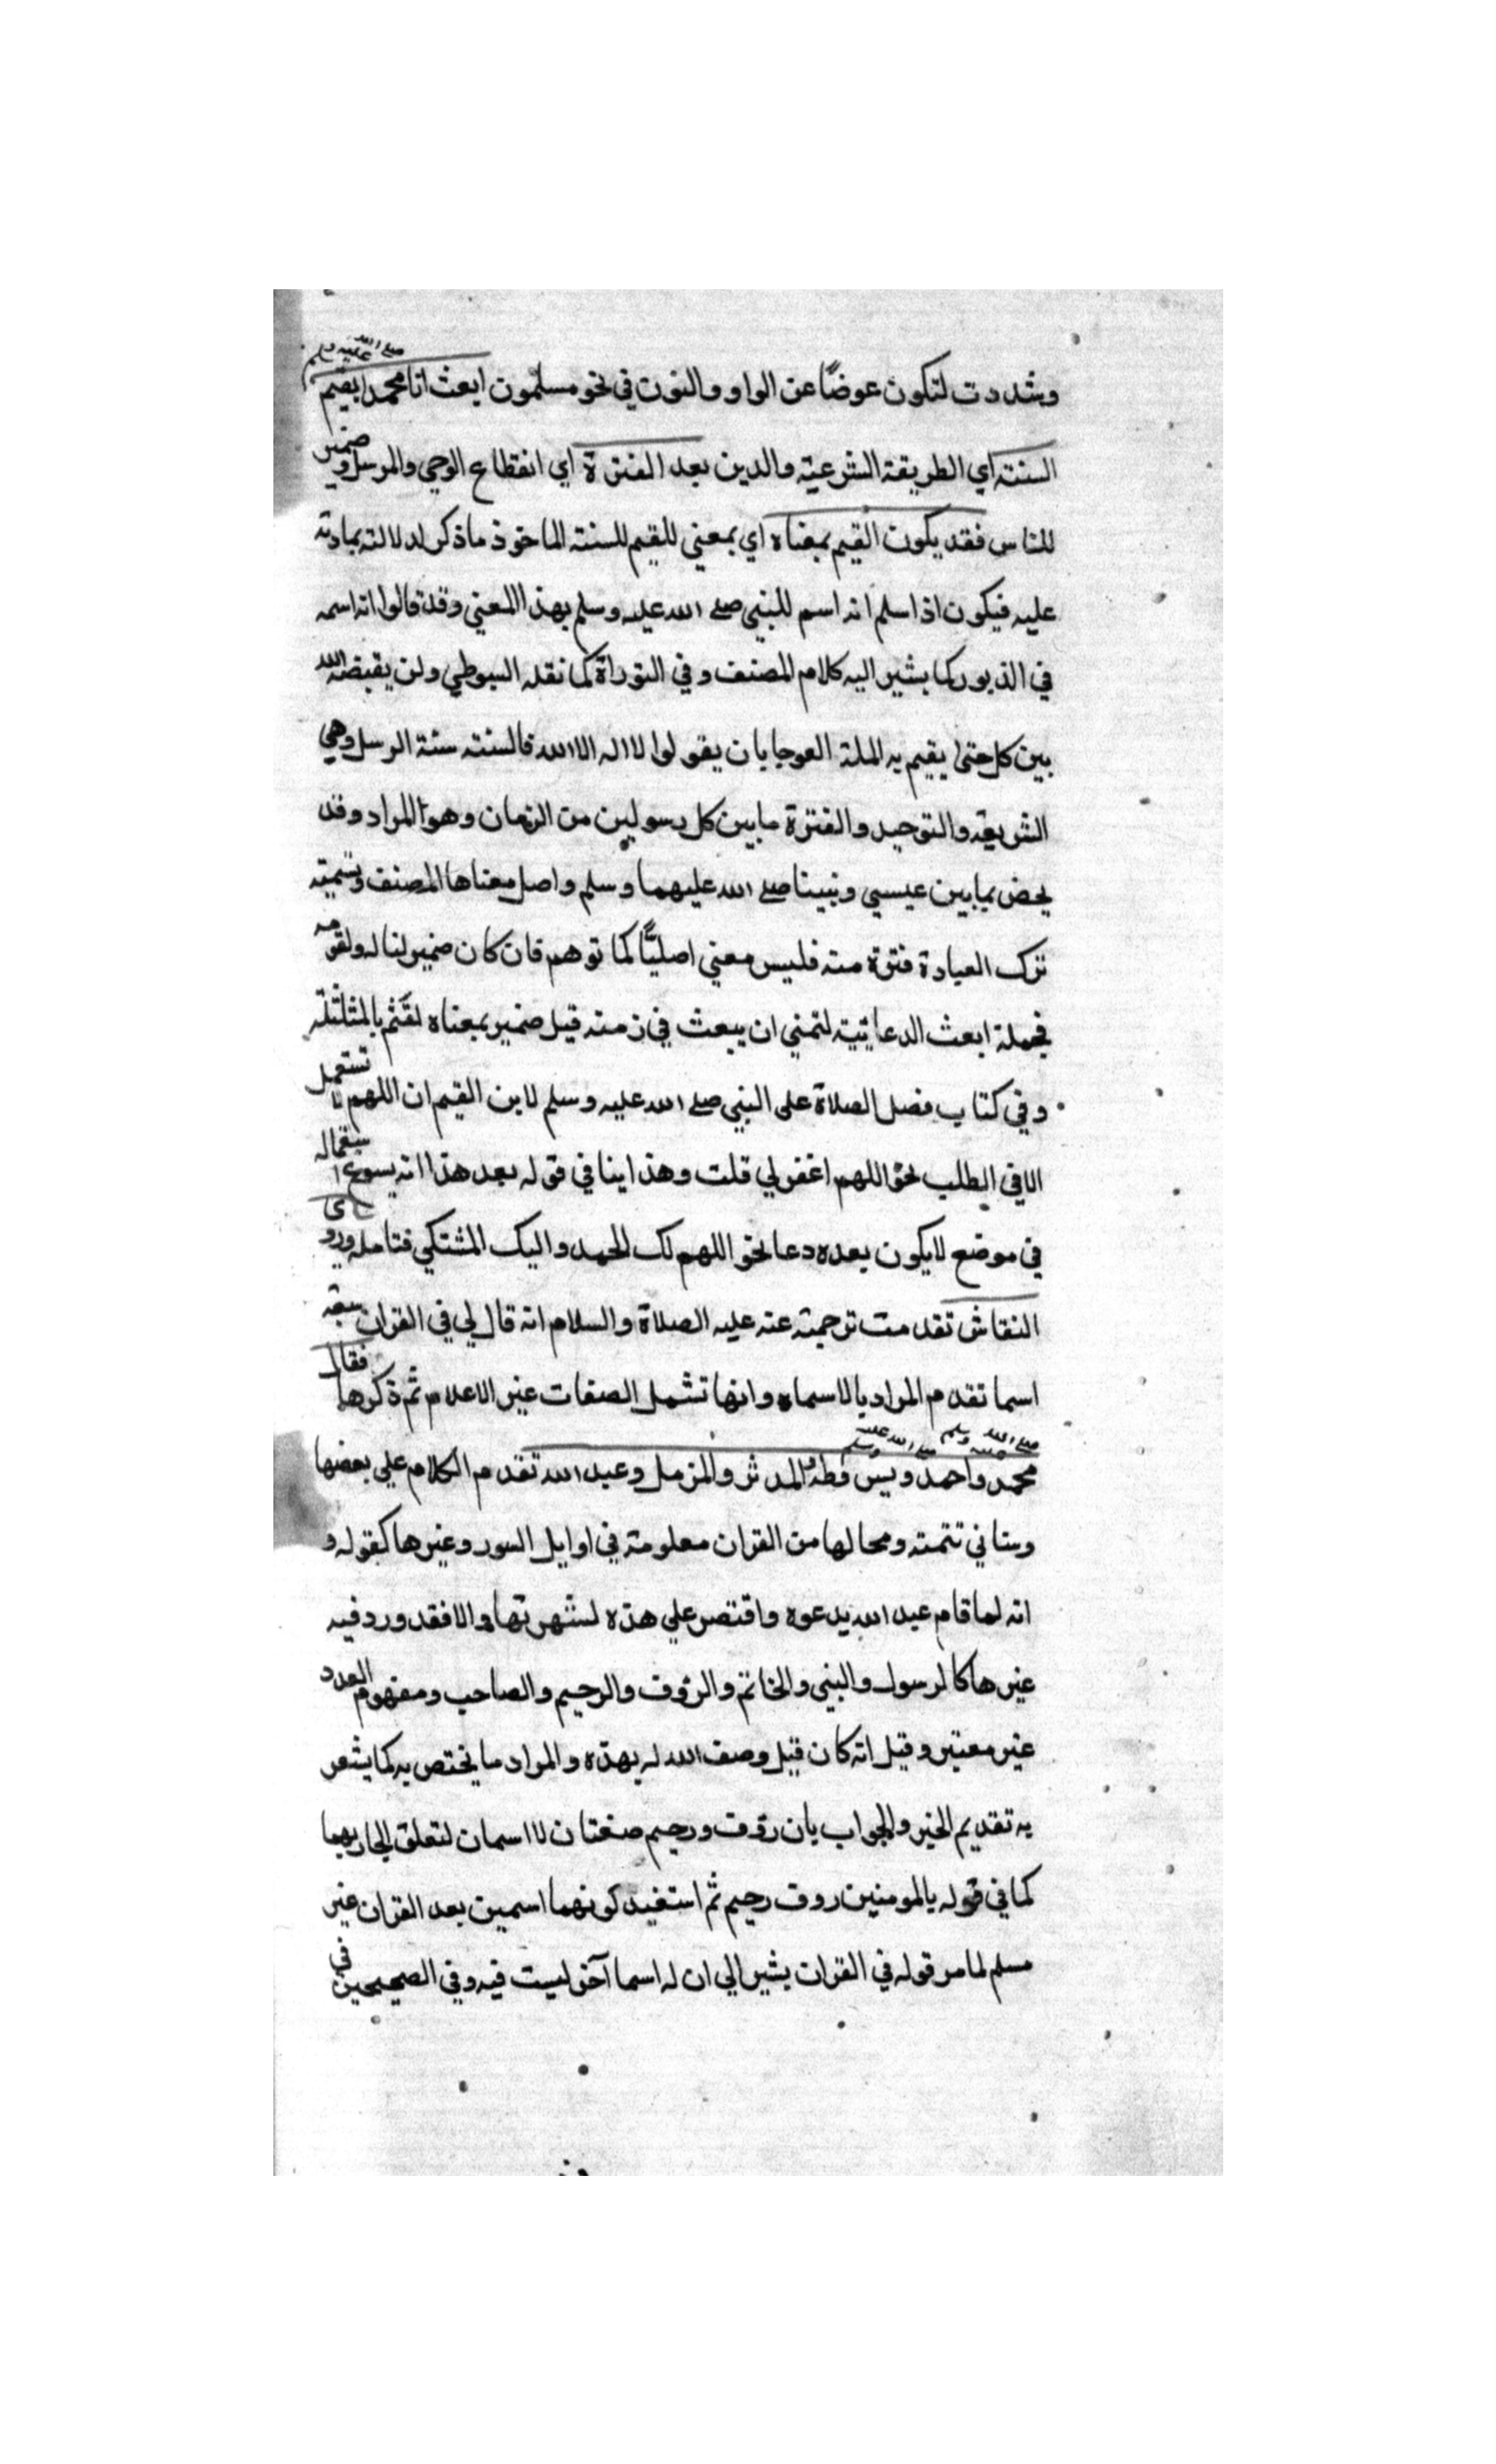 وشددت لتكون عوضًا عن الواو والنون في نحو مسلمون ابعث لنا محمدا صلى الله عليه وسلم يقيم
السنة اي الطريقة الشرعية والدين بعد الفترة اي انقطاع الوحي والرسل وضمير
للناس فقد يكون القيم بمعناه اي بمعني المقيم للسنة الماخوذ ماذكر لدلالته بمادته
عليه فيكون اذا سلم انه اسم للنبي صلى الله عليه وسلم بهذا المعني وقد قالوا انه اسمه
في الذبور كما يشير اليه كلام المصنف وفي التوراة كما نقله السيوطي ولن يقبضه الله
بين كل حتى يقيم به الملة العوجا بان يقولوا لا اله الا الله فالسنة سنة الرسل وهي
الشريعة والتوحيد والفترة ما بين كل رسولين من الزمان وهو المراد وقد
يخص بما بين عيسي ونبينا صلى الله عليهما وسلم واصل معناها المصنف وتسمية
ترك العبادة فترة منه فليس معني اصليًّا كما توهم فان كان ضمير لنا له ولقومه
فجملة ابعث الدعائية لتمني ان يبعث في زمنه قيل ضمير بمعناه لقثم بالمثلثة
وفي كتاب فضل الصلاة على النبي صلى الله عليه وسلم لابن القيم ان اللهم لا تستعمل
الا في الطلب نحو اللهم اغفر لي قلت وهذا ينافي قوله بعد هذا انه يسوغ استعماله
في موضع لا يكون بعده دعا نحو اللهم لك الحمد واليك المشتكي فتامله وروى
النقاش تقدمت ترجمته عنه عليه الصلاة والسلام انه قال لي في القران سبعة
اسما تقدم المراد بالاسماء وانها تشمل الصفات غير الاعلام ثم ذكرها فقال
محمد صلى الله عليه وسلم واحمد صلى الله عليه وسلم ويس وطه والمدثر والمزمل وعبد الله تقدم الكلام علي بعضها
وستاتي تتمته ومحالها من القران معلومة في اوايل السور وغيرها كقوله و
انه لما قام عبد الله يدعوه واقتصر علي هذه لشهرتها والا فقد ورد فيه
غيرها كالرسول والنبي والخاتم والرؤف والرحيم والصاحب ومفهوم العدد
غير معتبر وقيل انه كان قبل وصف الله له بهذه والمراد ما يختص به كما يشعر
به تقديم الخبر والجواب بان رؤف ورحيم صفتان لا اسمان لتعلق الجار بهما
كما في قوله بالمومنين روف رحيم ثم استفيد كونهما اسمين بعد القران غير
مسلم لما مر قوله في القران يشير الي ان له اسما آخر ليست فيه وفي الصحيحين في